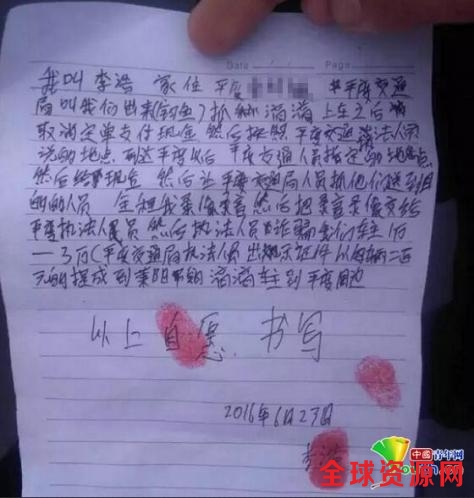 Date Page
我叫 李浩 家住 平度 平度交通
局叫我们出来(钓鱼)抓 滴滴 上车之后
取消定单支付现金 然后按照 平度交通 法人员
说的地点 到达平度以后 平度交通人员指定的地点
然后给现金 然后让平度交通局人员抓他们送到目
的的人员 全程我录像录音 然后把录音录像交给
平度执法人员 然后执法人员 诈骗 车主1万
一3万(平度交通局执法人员出 示证件 以每辆二百
元的提成 到莱阳 滴滴车主到平度周边
以上自愿 书写
2016年6月23日
李浩
中国青年网
youth.cn
全球资源网